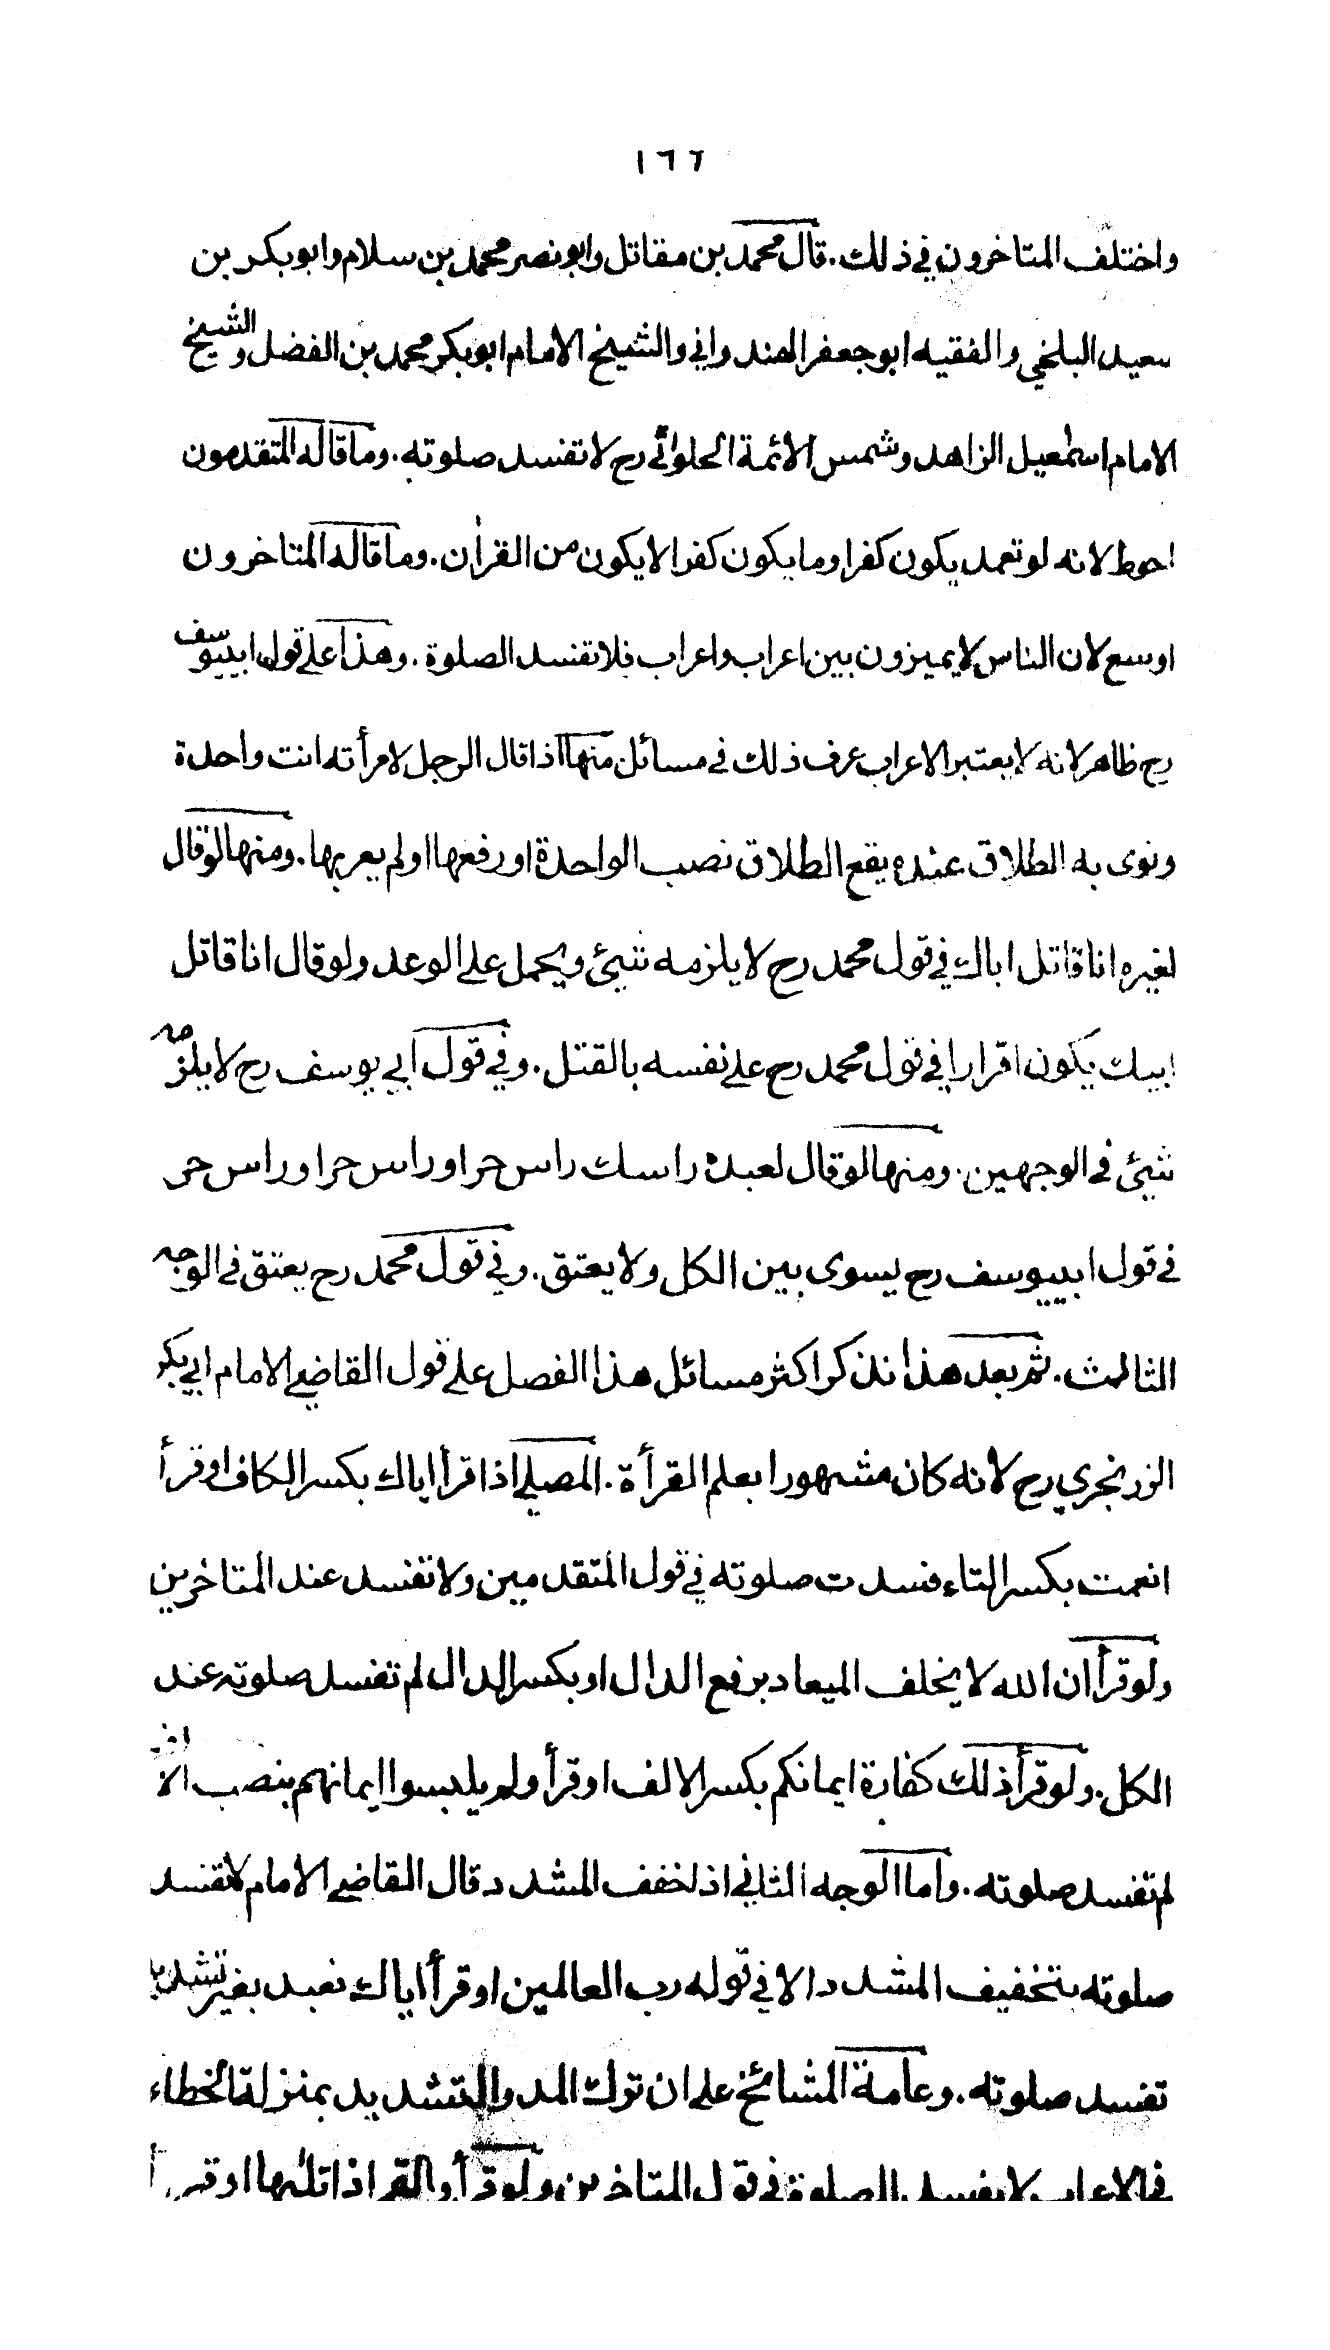 ١٦٦
واختلف المتاخرون في ذلك. قال محمد بن مقاتل وابو نصر محمد بن سلام وابو بكر بن
سعيد البلخي والفقيه ابو جعفر الهندواني والشيخ الامام ابو بكر محمد بن الفضل والشيخ
الامام اسمعيل الزاهد وشمس الائمة الحلوائي رح لا تفسد صلوته. وما قاله المتقدمون
احوط لانه لو تعمد يكون كفرا وما يكون كفرا لا يكون من القرأن. وما قاله المتاخرون
اوسع لان الناس لا يميزون بين اعراب واعراب فلا تفسد الصلوة. وهذا على قول ابييوسف
رح ظاهر لانه لا يعتبر الاعراب عرف ذلك في مسائل منها اذا قال الرجل لامرأته انت واحدة
ونوى به الطلاق عنده يقع الطلاق نصب الواحدة او رفعها او لم يعربها. ومنها لو قال
لغيره انا قاتل اباك في قول محمد رح لا يلزمه شيئ ويحمل على الوعد ولو قال انا قاتل
ابيك يكون اقرارا في قول محمد رح على نفسه بالقتل. وفي قول ابي يوسف رح لا يلزمه
شيئ في الوجهين. ومنها لو قال لعبده راسك راس حر او راس حرا او راس حر
في قول ابييوسف رح يسوى بين الكل ولا يعتق. وفي قول محمد رح يعتق في الوجه
الثالث. ثم بعد هذا نذكر اكثر مسائل هذا الفصل على قول القاضي الامام ابي بكر
الزرنجري رح لانه كان مشهورا بعلم القرأة. المصلي اذا قرأ اياك بكسر الكاف او قرأ
انعمت بكسر التاء فسدت صلوته في قول المتقدمين ولا تفسد عند المتاخرين
ولو قرأ ان الله لا يخلف الميعاد برفع الدال او بكسر الدال لم تفسد صلوته عند
الكل. ولو قرأ ذلك كفارة ايمانكم بكسر الالف او قرأ ولم يلبسوا ايمانهم بنصب الالف
لم تفسد صلوته. واما الوجه الثاني اذا خفف المشدد قال القاضي الامام لا تفسد
صلوته بتخفيف المشدد الا في قوله رب العالمين او قرأ اياك نعبد بغير تشديد
تفسد صلوته. وعامة المشائخ على ان ترك المد والتشديد بمنزلة الخطاء
في الاعراب لا يفسد الصلوة في قول المتاخرين ولو قرأ والقمر اذا تلٰيها او قرأ